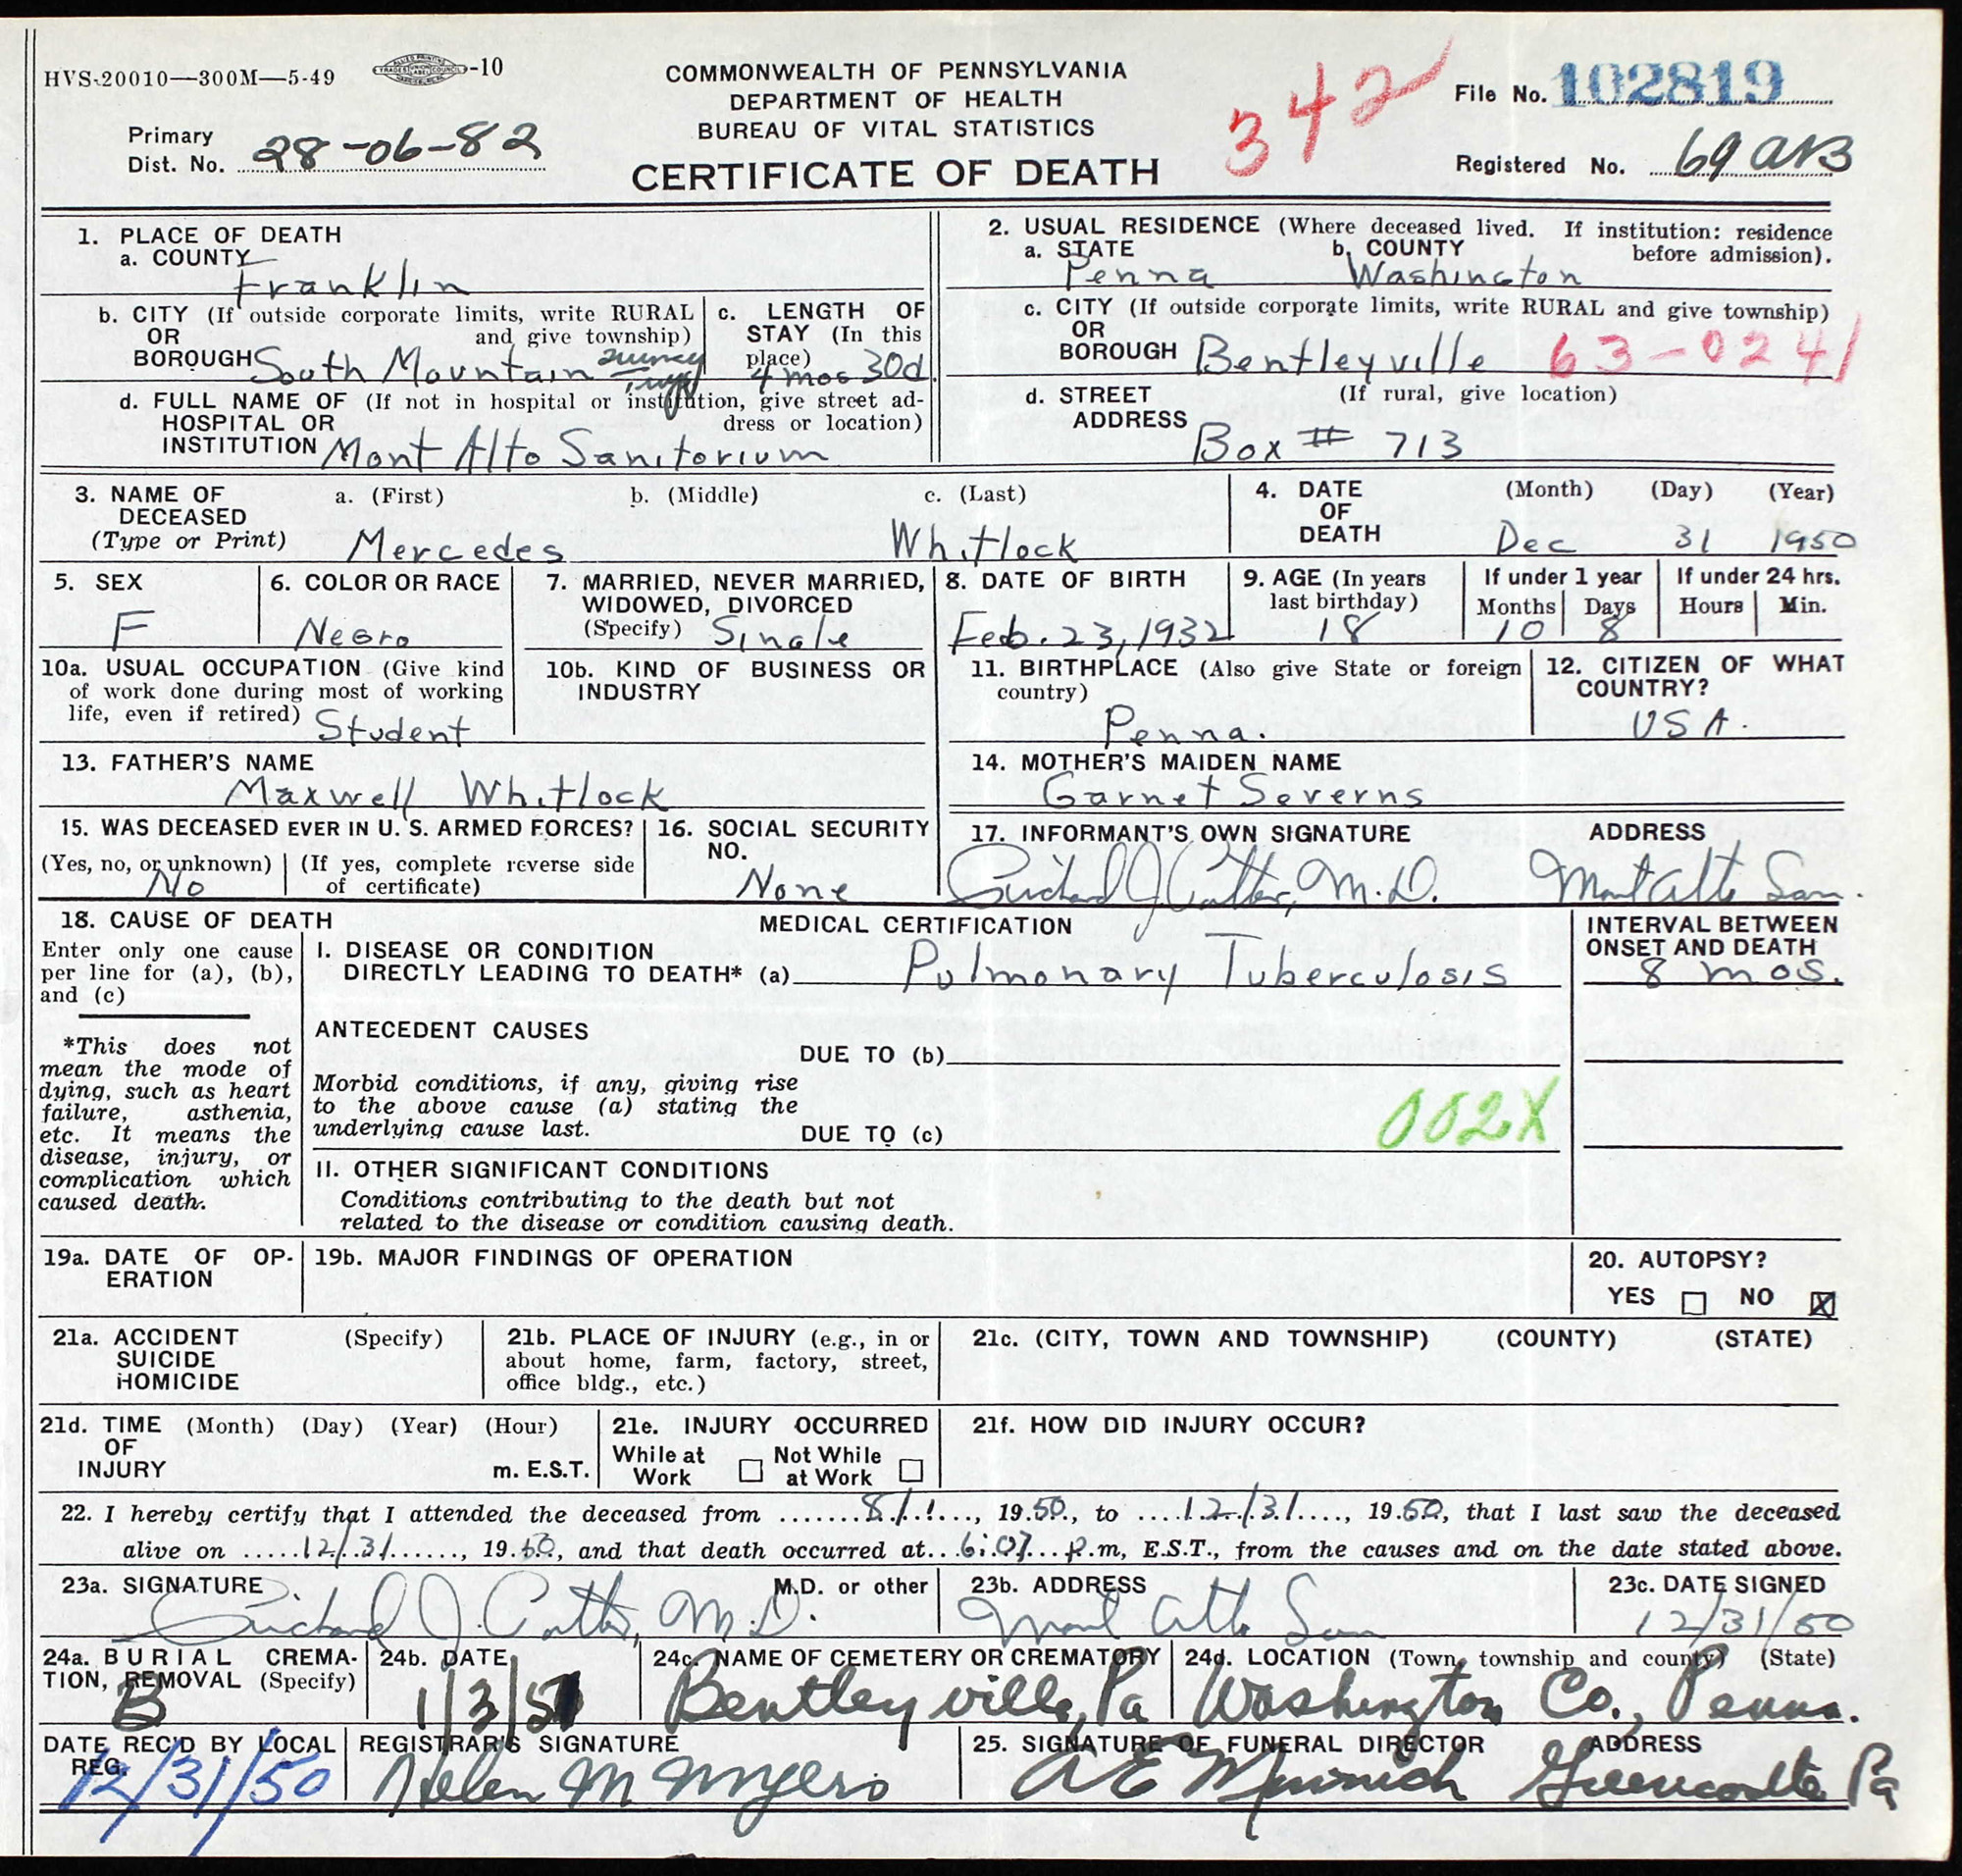 HVS-20010—300M—5-49 -10
COMMONWEALTH OF PENNSYLVANIA
DEPARTMENT OF HEALTH
BUREAU OF VITAL STATISTICS
CERTIFICATE OF DEATH
342
File No. 102819
Primary
Dist. No. 28-06-82
Registered No. 69
1. PLACE OF DEATH
a. COUNTY
Franklin
b. CITY (If outside corporate limits, write RURAL
OR and give township)
BOROUGH South Mountain
c. LENGTH OF
STAY (In this
place)
4 mos 30d
d. FULL NAME OF (If not in hospital or institution, give street ad-
HOSPITAL OR dress or location)
INSTITUTION Mont Alto Sanitorium
2. USUAL RESIDENCE (Where deceased lived. If institution: residence
a. STATE b. COUNTY before admission).
Penna Washington
c. CITY (If outside corporate limits, write RURAL and give township)
OR
BOROUGH Bentleyville 63-0241
d. STREET (If rural, give location)
ADDRESS
Box # 713
3. NAME OF a. (First) b. (Middle) c. (Last)
DECEASED
(Type or Print) Mercedes Whitlock
4. DATE (Month) (Day) (Year)
OF
DEATH Dec 31 1950
5. SEX
F
6. COLOR OR RACE
Negro
7. MARRIED, NEVER MARRIED,
WIDOWED, DIVORCED
(Specify) Single
8. DATE OF BIRTH
Feb. 23, 1932
9. AGE (In years
last birthday)
18
If under 1 year
Months Days
10 8
If under 24 hrs.
Hours Min.
10a. USUAL OCCUPATION (Give kind
of work done during most of working
life, even if retired) Student
10b. KIND OF BUSINESS OR
INDUSTRY
11. BIRTHPLACE (Also give State or foreign
country)
Penna.
12. CITIZEN OF WHAT
COUNTRY?
USA.
13. FATHER'S NAME
Maxwell Whitlock
14. MOTHER'S MAIDEN NAME
Garnet Severns
15. WAS DECEASED EVER IN U. S. ARMED FORCES?
(Yes, no, or unknown) (If yes, complete reverse side
No of certificate)
16. SOCIAL SECURITY
NO.
None
17. INFORMANT'S OWN SIGNATURE ADDRESS
Richard J. M.D. Mont Alto San.
18. CAUSE OF DEATH
Enter only one cause
per line for (a), (b),
and (c)
*This does not
mean the mode of
dying, such as heart
failure, asthenia,
etc. It means the
disease, injury, or
complication which
caused death.
MEDICAL CERTIFICATION
I. DISEASE OR CONDITION
DIRECTLY LEADING TO DEATH* (a) Pulmonary Tuberculosis
ANTECEDENT CAUSES
DUE TO (b)
Morbid conditions, if any, giving rise
to the above cause (a) stating the
underlying cause last.
DUE TO (c)
002X
II. OTHER SIGNIFICANT CONDITIONS
Conditions contributing to the death but not
related to the disease or condition causing death.
INTERVAL BETWEEN
ONSET AND DEATH
8 mos.
19a. DATE OF OP-
ERATION
19b. MAJOR FINDINGS OF OPERATION
20. AUTOPSY?
YES NO X
21a. ACCIDENT (Specify)
SUICIDE
HOMICIDE
21b. PLACE OF INJURY (e.g., in or
about home, farm, factory, street,
office bldg., etc.)
21c. (CITY, TOWN AND TOWNSHIP) (COUNTY) (STATE)
21d. TIME (Month) (Day) (Year) (Hour)
OF
INJURY m. E.S.T.
21e. INJURY OCCURRED
While at Not While
Work at Work
21f. HOW DID INJURY OCCUR?
22. I hereby certify that I attended the deceased from 8/1, 1950, to 12/31, 1950, that I last saw the deceased
alive on 12/31, 1950, and that death occurred at 6:07 P.m, E.S.T., from the causes and on the date stated above.
23a. SIGNATURE M.D. or other
Richard J. M.D.
23b. ADDRESS
Mont Alto San
23c. DATE SIGNED
12/31/50
24a. BURIAL CREMA-
TION, REMOVAL (Specify)
B
24b. DATE
1/3/51
24c. NAME OF CEMETERY OR CREMATORY
Bentleyville, Pa
24d. LOCATION (Town, township and county) (State)
Washington Co., Penna.
DATE REC'D BY LOCAL
REG.
12/31/50
REGISTRAR'S SIGNATURE
Helen M Myers
25. SIGNATURE OF FUNERAL DIRECTOR ADDRESS
A E Minnich Greencastle Pa